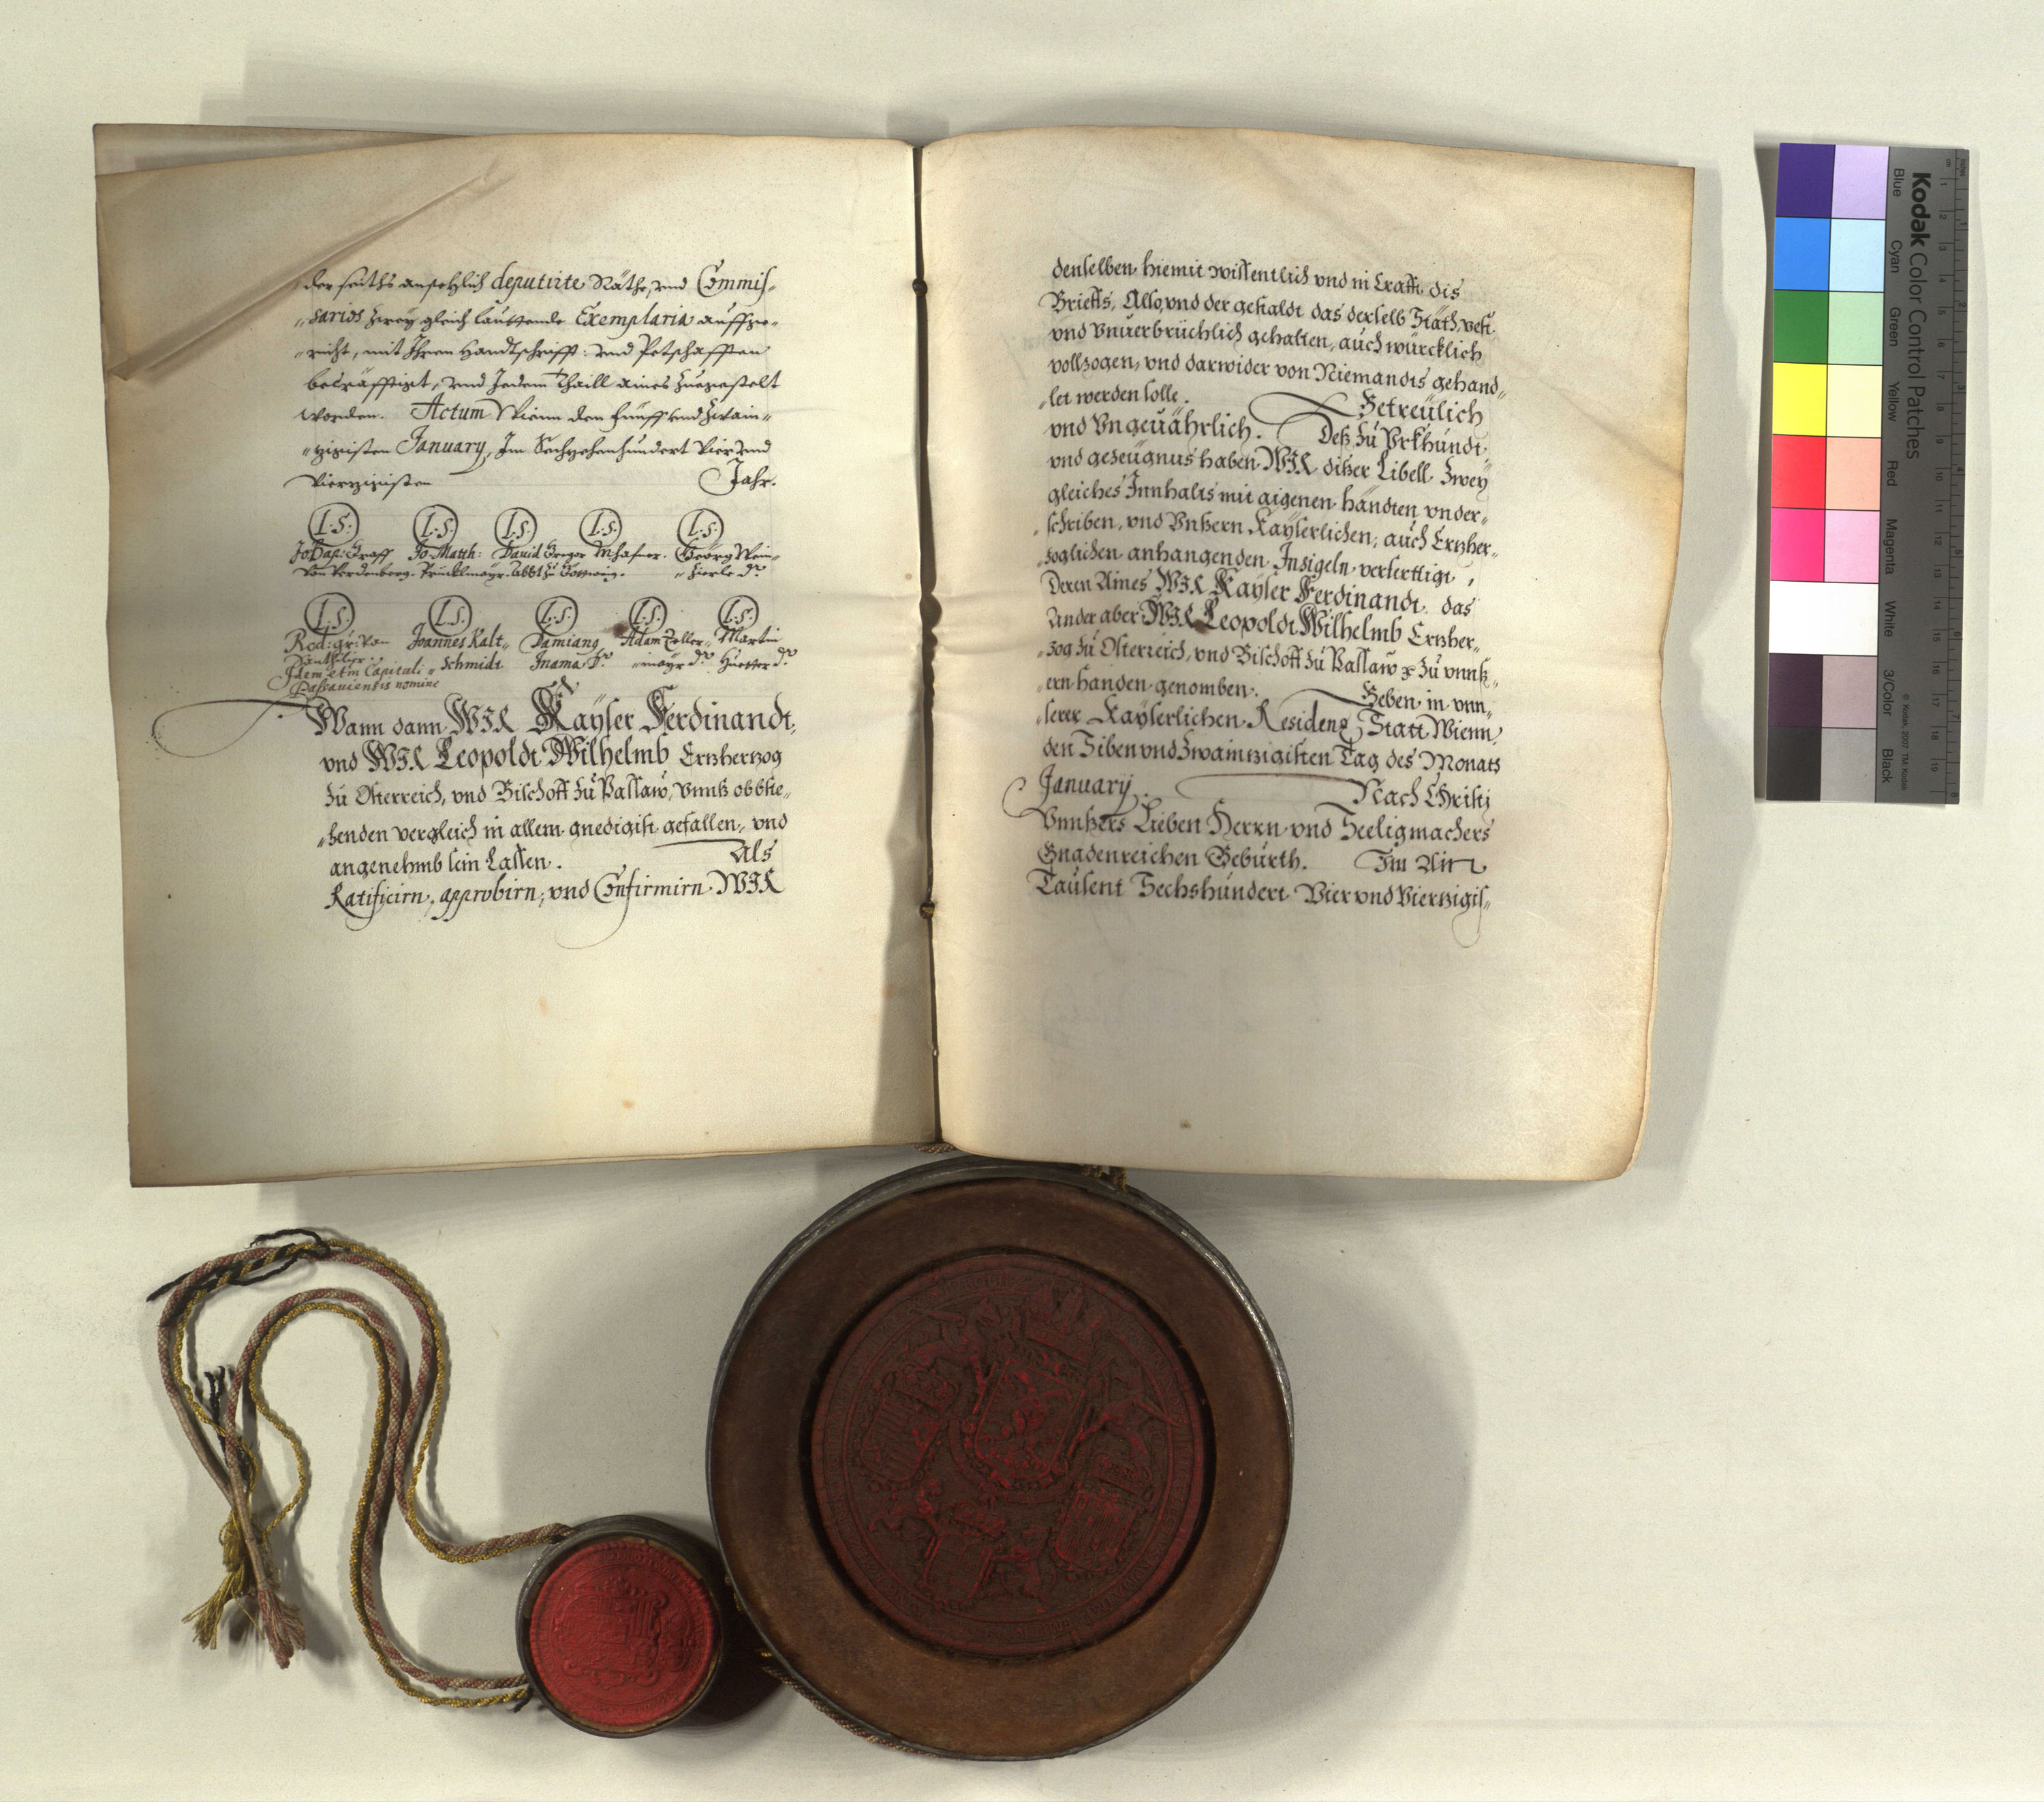 der seiths ansehlich deputirte Räthe, vnd Commis„
„sarios zwey gleich lauttende Exemplaria auffge„
„richt, mit Ihren Handtschrifft: vnd Petschafften
becräfftigt, vnd Jedem Thaill aines zuegestelt
worden. Actum Wienn den Fünff vnd zwain„
„zigisten January, Im Sechzehenhundert Vier vnd
Vierzigisten Jahr.
L.S. L.S. L.S. L.S. L.S.
Jo Bap: Graff Jo: Matth: Dauid Gregor Georg Wein„
von Verdenberg. Prücklmayr. Abbt zu Göttweig. „zierle Dr.
L.S. L.S. L.S. L.S. L.S.
Rod: gr: von Joannes Kalt„ Damiang Adam Zeller„ Martin
„schmidt Inama „mayr Dr. Huetter Dr.
Idem etm Capituli
Passauiensis nomine
Wann dann WIR Kayser Ferdinandt,
vnd WIR Leopoldt Wilhelmb Ertzhertzog
zu Osterreich, vnd Bischoff zu Passaw, Vnnß obbste„
„henden vergleich in allem gnedigist gefallen, vnd
angenehmb sein Lassen. Als
Ratificirn, approbirn, vnd Confirmirn WIR
denselben hiemit wissentlich vnd in Crafft dis
Brieffs, Also, vnd der gestaldt das derselb Stäth, vest
vnd Vnuerbrüchlich gehalten, auch würcklich
vollzogen, vnd darwider von Niemandts gehand„
„let werden solle. Getreülich
vnd Vngeuährlich. Deß zu Vrkhundt
vnd gezeügnus haben WIR dißer Libell Zwey
gleiches Innhalts mit aigenen händten vnder„
„schriben, vnd Vnßern Kayserlichen, auch Ertzher„
„zoglichen anhangenden Insigeln verfertigt,
Deren Aines WIR Kayser Ferdinandt das
Ander aber WIR Leopoldt Wilhelmb Ertzher„
„zog zu Osterreich, vnd Bischoff zu Passaw zu vnnß„
„ern handen genomben. Geben in vnn„
„serer Kayserlichen Residenz Statt Wienn,
den Siben vnd Zwaintzigisten Tag des Monats
January. Nach Christj
Vnnßers Lieben Herrn vnd Seeligmachers
Gnadenreichen Gebürth. Im Ain
Tausent Sechshundert Vier vnd Viertzigis„
Kodak Color Control Patches
Blue Cyan Green Yellow Red Magenta White 3/Color Black
© Kodak, 2007 TM: Kodak